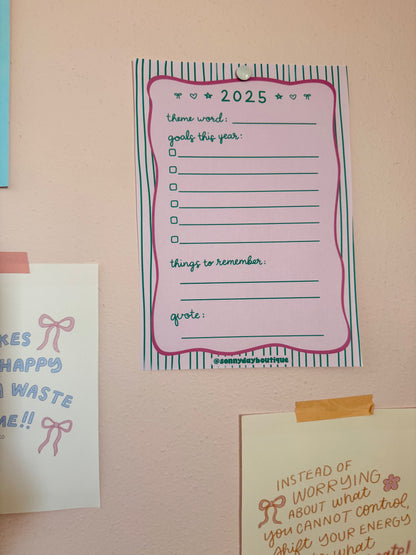 2025
theme word:
goals this year:
things to remember:
quote:
@sonnydayboutique
KES
HAPPY
A WASTE
ME!!
INSTEAD OF
WORRYING
ABOUT what
you CANNOT control,
shift YOUR ENERGY
what